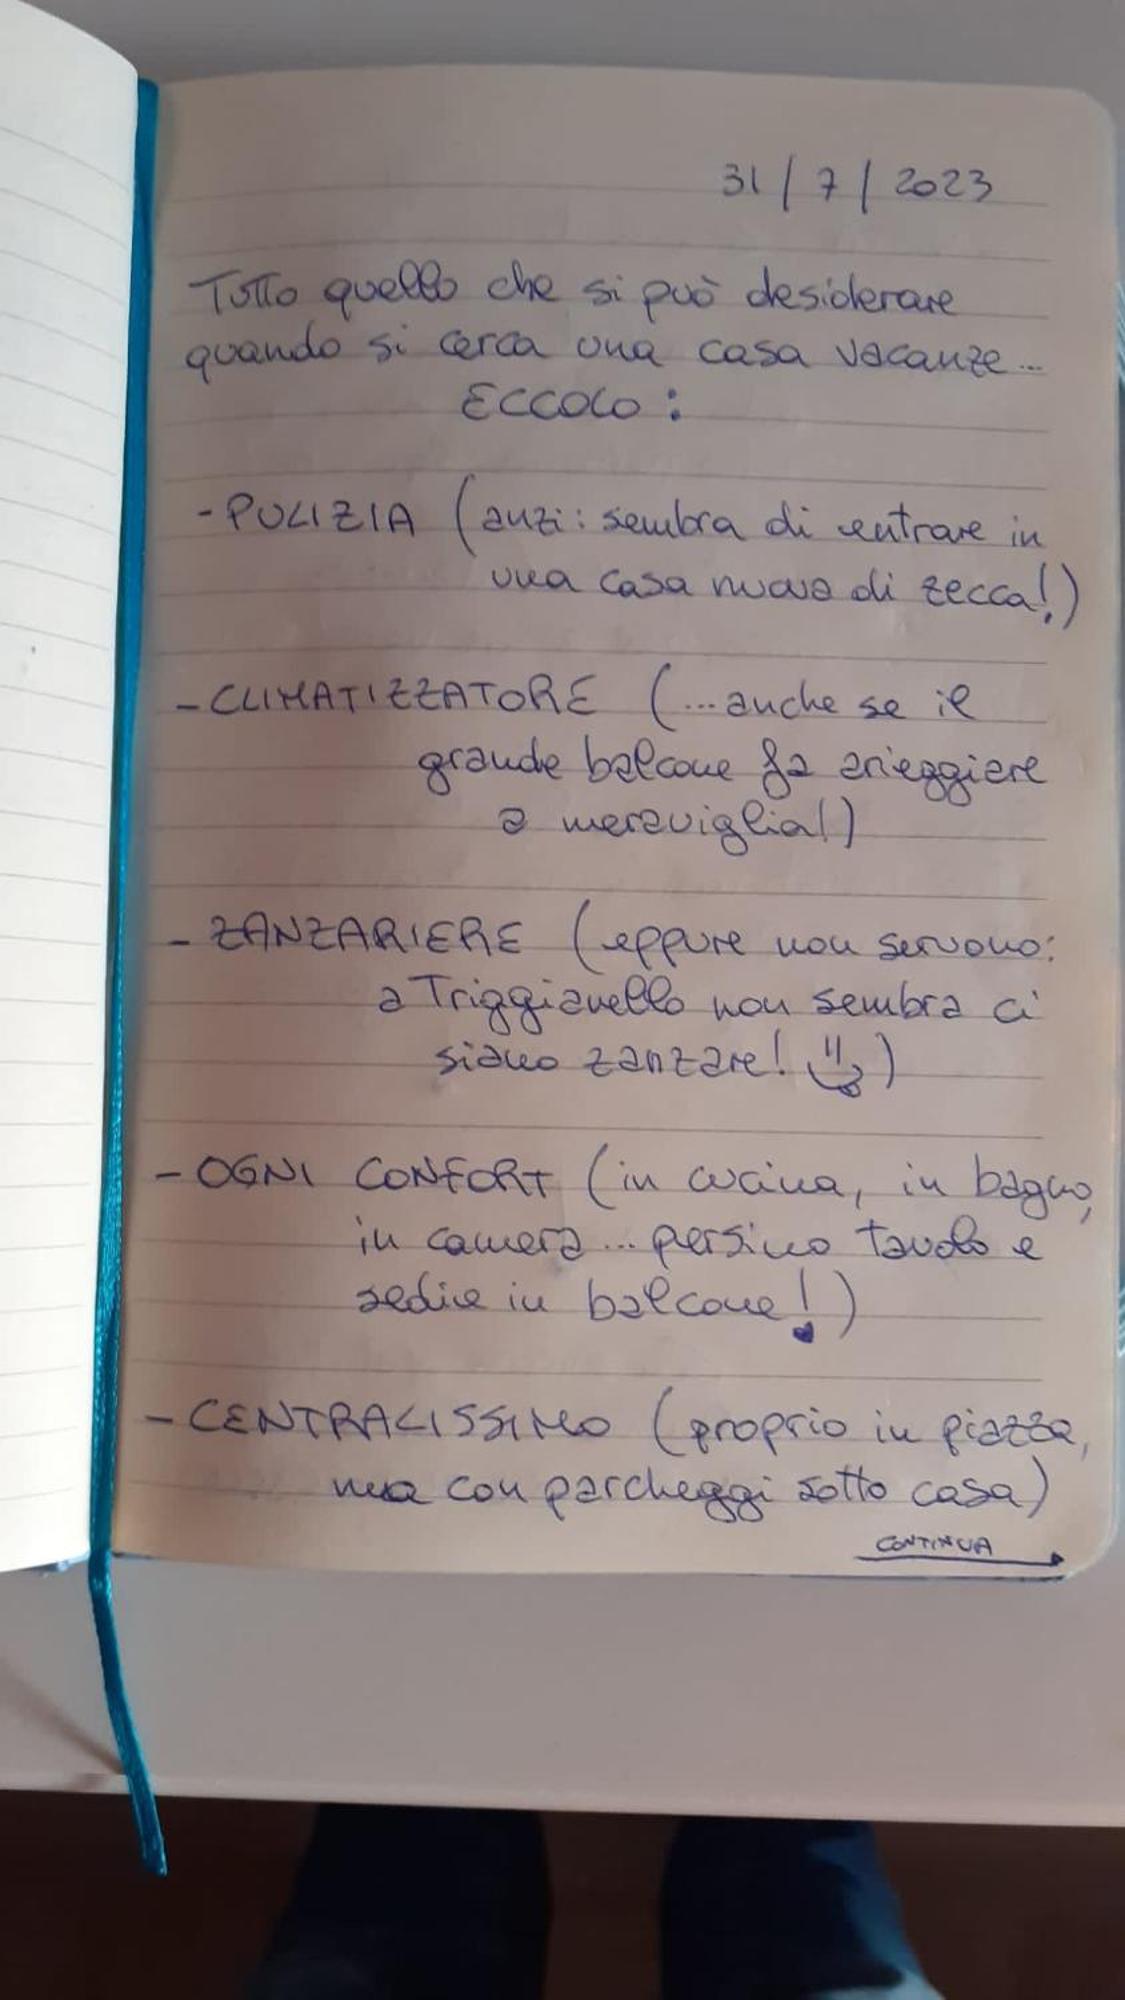 31/7/2023
Tutto quello che si può desiderare
quando si cerca una casa vacanze...
ECCOLO:
- PULIZIA (anzi: sembra di entrare in
una casa nuova di zecca!)
- CLIMATIZZATORE (...anche se il
grande balcone fa arieggiare
a meraviglia!)
- ZANZARIERE (eppure non servono:
a Triggianello non sembra ci
siano zanzare!)
- OGNI CONFORT (in cucina, in bagno,
in camera... persino tavolo e
sedie in balcone!)
- CENTRALISSIMO (proprio in piazza,
ma con parcheggi sotto casa)
CONTINUA